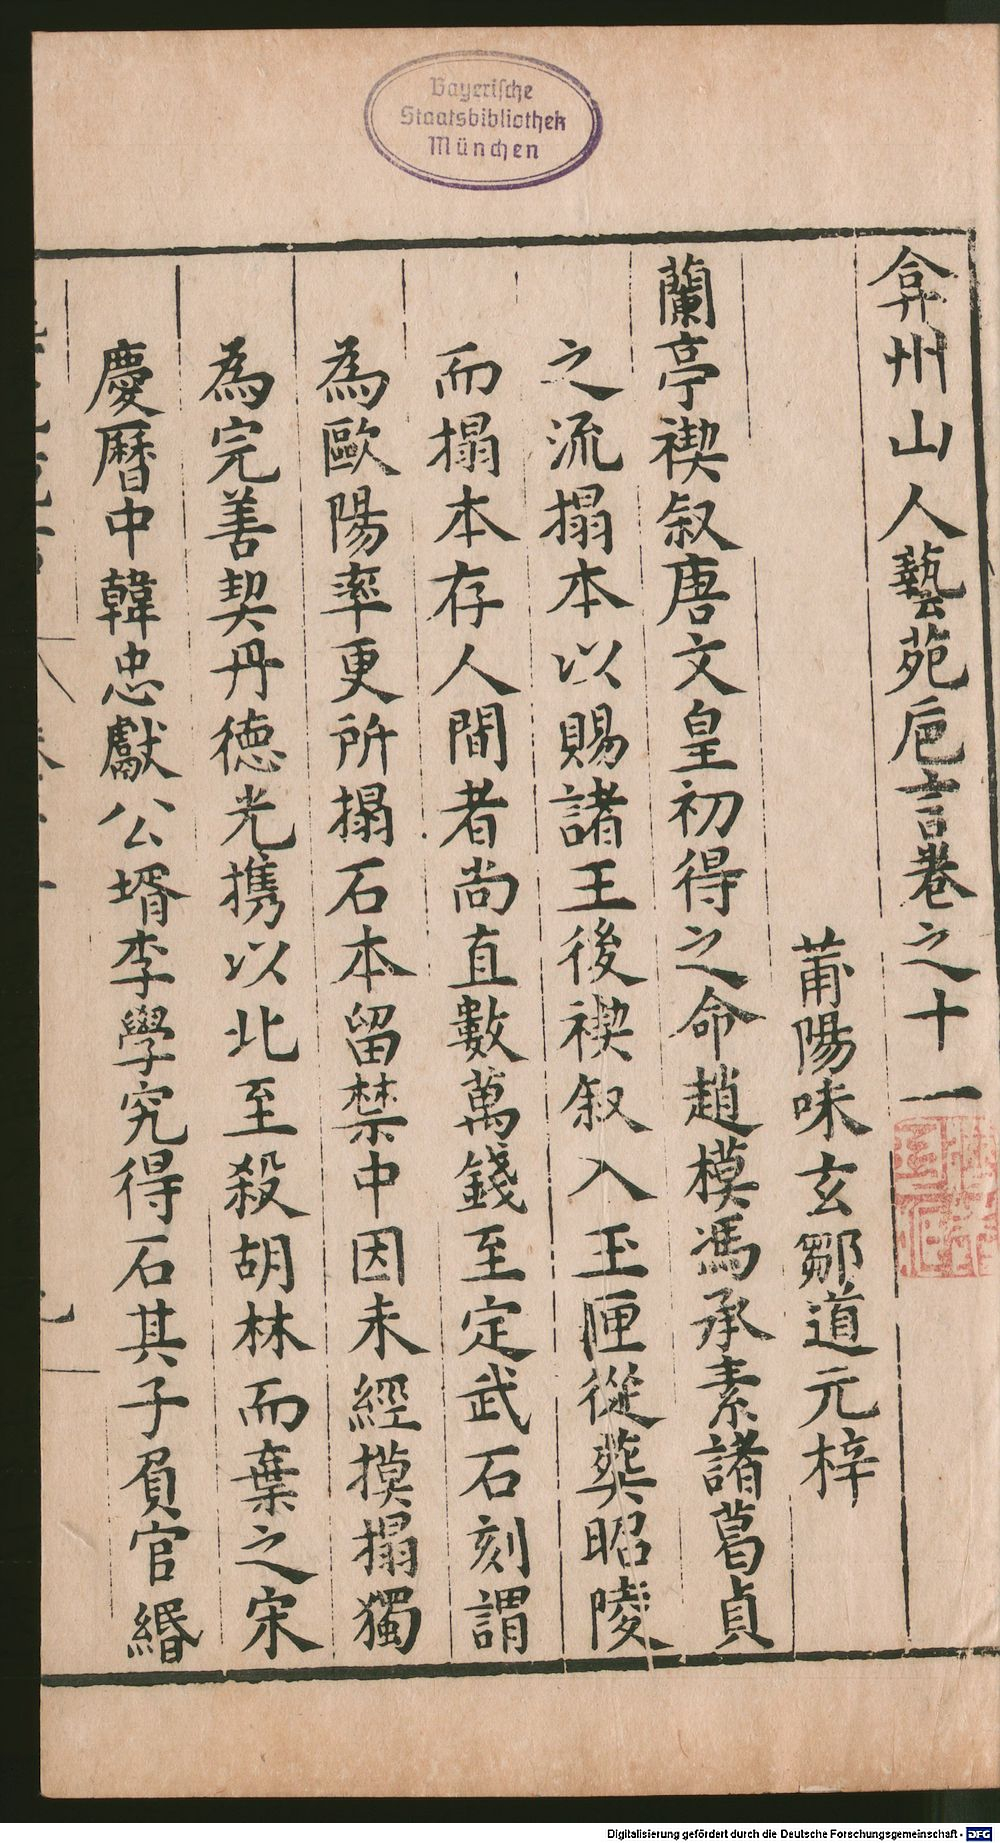 Bayerische
Staatsbibliothek
München
弇州山人藝苑巵言卷之十一
莆陽味玄鄒道元梓
蘭亭禊叙唐文皇初得之命趙模馮承素諸葛貞
之流搨本以賜諸王後禊叙入玉匣從葬昭陵
而搨本存人間者尚直數萬錢至定武石刻謂
為歐陽率更所搨石本留禁中因未經摸搨獨
為完善契丹德光携以北至殺胡林而棄之宋
慶曆中韓忠獻公壻李學究得石其子負官緡
Digitalisierung gefördert durch die Deutsche Forschungsgemeinschaft - DFG